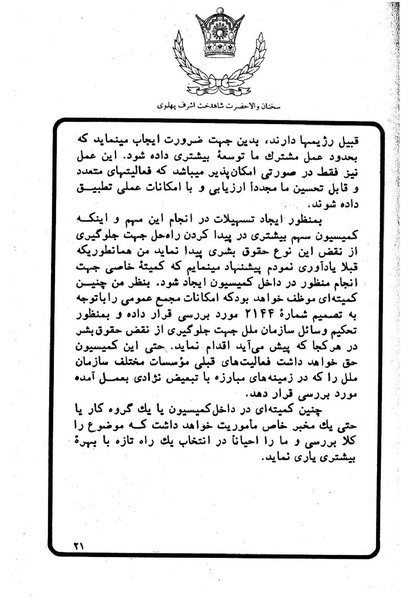 سخنان والاحضرت شاهدخت اشرف پهلوی
قبیل رژیمها دارند، بدین جهت ضرورت ایجاب مینماید که
بحدود عمل مشترك ما توسعهٔ بیشتری داده شود. این عمل
نیز فقط در صورتی امکان‌پذیر میباشد که فعالیتهای متعدد
و قابل تحسین ما مجدداً ارزیابی و با امکانات عملی تطبیق
داده شوند.
بمنظور ایجاد تسهیلات در انجام این مهم و اینکه
کمیسیون سهم بیشتری در پیدا کردن راه‌حل جهت جلوگیری
از نقض این نوع حقوق بشری پیدا نماید من همانطوریکه
قبلا یادآوری نمودم پیشنهاد مینمایم که کمیتهٔ خاصی جهت
انجام منظور در داخل کمیسیون ایجاد شود. بنظر من چنین
کمیته‌ای موظف خواهد بود که امکانات مجمع عمومی را باتوجه
به تصمیم شمارهٔ ۲۱۴۴ مورد بررسی قرار داده و بمنظور
تحکیم وسائل سازمان ملل جهت جلوگیری از نقض حقوق‌بشر
در هرکجا که پیش می‌آید اقدام نماید. حتی این کمیسیون
حق خواهد داشت فعالیت‌های قبلی مؤسسات مختلف سازمان
ملل را که در زمینه‌های مبارزه با تبعیض نژادی بعمل آمده
مورد بررسی قرار دهد.
چنین کمیته‌ای در داخل کمیسیون یا یك گروه کار یا
حتی یك مخبر خاص مأموریت خواهد داشت که موضوع را
کلا بررسی و ما را احیاناً در انتخاب یك راه تازه با بهرهٔ
بیشتری یاری نماید.
۲۱